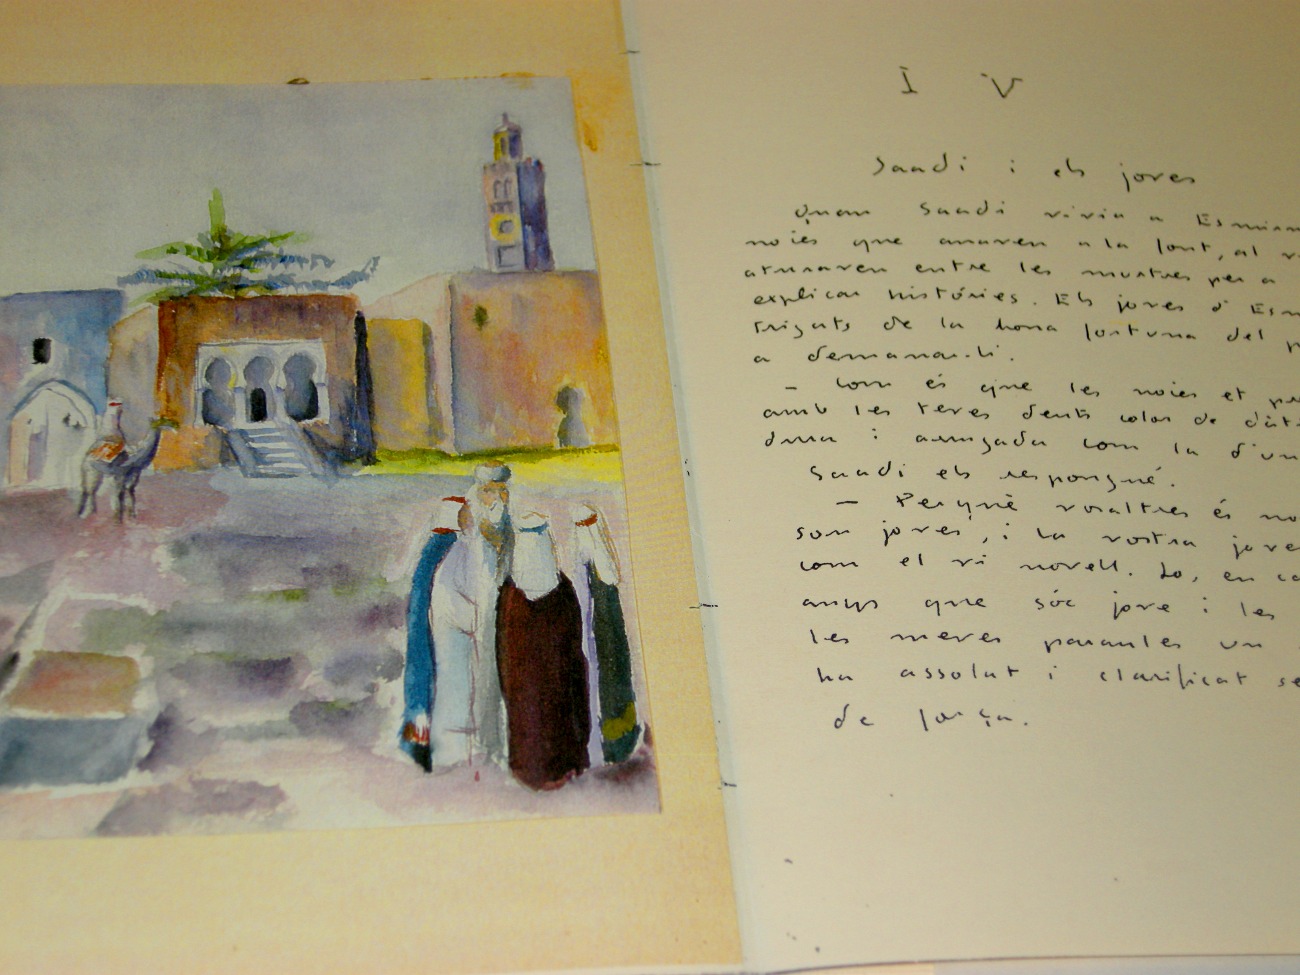 IV
Saadi i els joves
Quan Saadi vivia a Esmirn
noies que anaven a la font, al v
aturaven entre les murtres per a
explicar històries. Els joves d'Esm
trigats de la bona fortuna del p
a demanar-li.
- Com és que les noies et pa
amb les teves dents color de dàt
dura i arrugada com la d'un
Saadi els respongué.
- Perquè vosaltres és no
sou joves, i la vostra jove
com el vi novell. Jo, en ca
anys que sóc jove i les
les meves paraules un
ha assolat i clarificat se
de força.